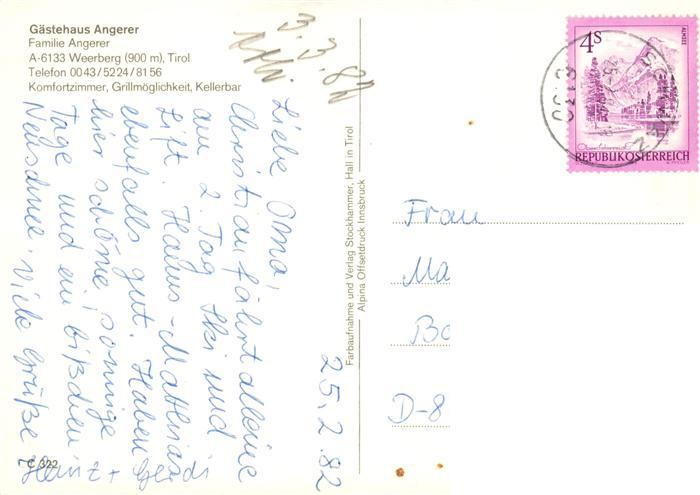 Gästehaus Angerer
Familie Angerer
A-6133 Weerberg (900 m), Tirol
Telefon 0043/5224/8156
Komfortzimmer, Grillmöglichkeit, Kellerbar
3.3.82
25.2.82
Liebe Oma,
Christian fährt alleine
am 2. Tag Ski und
Lift. Hans-Matthias
ebenfalls gut. Haben
hier schöne, sonnige
Tage und ein bißchen
Neuschnee. Viele Grüße
Heinz + Gerdi
C 322
Farbaufnahme und Verlag Stockhammer, Hall in Tirol
Alpina Offsetdruck Innsbruck
4S
ALMSEE
Oberösterreich
REPUBLIK ÖSTERREICH
6130
Frau
Ma
Bo
D-8